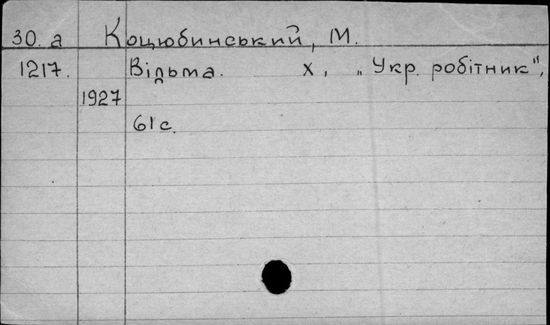 30. а Коцюбинський, М.
1217. Відьма. Х, „Укр. робітник",
1927
61 с.